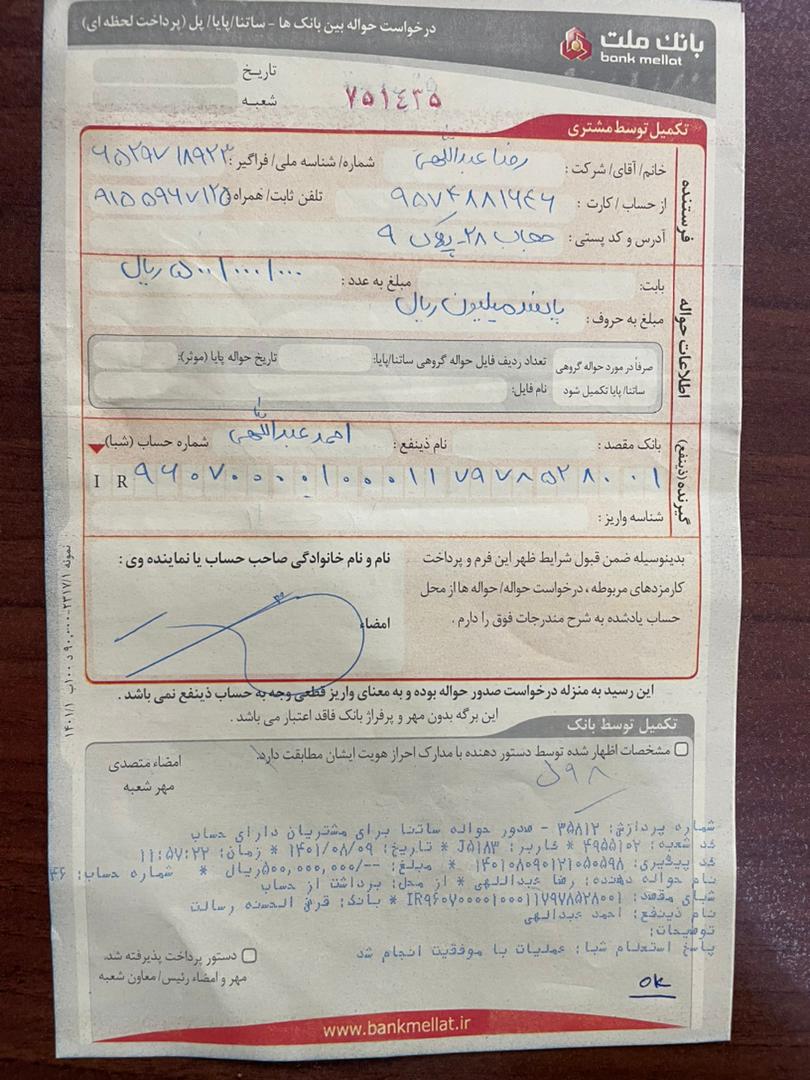 درخواست حواله بین بانک ها - ساتنا/پایا/پل (پرداخت لحظه ای)
بانک ملت
bank mellat
تاریخ
شعبه
۷۵۱۴۳۵
تکمیل توسط مشتری
فرستنده
خانم/آقای/شرکت: رضا عبداللهی شماره/شناسه ملی/فراگیر:
از حساب/کارت: ۹۵۷۴۸۸۱۶۴۶ تلفن ثابت/همراه: ۹۱۵۵۹۶۷۱۲۵
آدرس و کد پستی: حجاب ۲۸- پلاک ۹
اطلاعات حواله
بابت: مبلغ به عدد: ۵۰۰/۰۰۰/۰۰۰ ریال
مبلغ به حروف: پانصد میلیون ریال
صرفاً در مورد حواله گروهی ساتنا/پایا تکمیل شود
تعداد ردیف فایل حواله گروهی ساتنا/پایا: تاریخ حواله پایا (موثر):
نام فایل:
گیرنده (ذینفع)
بانک مقصد: نام ذینفع: احمد عبداللهی شماره حساب (شبا)
IR ۹۶۰۷۰۰۰۰۱۰۰۰۱۱۷۹۷۸۵۲۸۰۰۱
شناسه واریز:
بدینوسیله ضمن قبول شرایط ظهر این فرم و پرداخت
کارمزدهای مربوطه، درخواست حواله/حواله ها از محل
حساب یادشده به شرح مندرجات فوق را دارم.
نام و نام خانوادگی صاحب حساب یا نماینده وی:
امضاء
این رسید به منزله درخواست صدور حواله بوده و به معنای واریز قطعی وجه به حساب ذینفع نمی باشد.
این برگه بدون مهر و پرفراژ بانک فاقد اعتبار می باشد.
تکمیل توسط بانک
مشخصات اظهار شده توسط دستور دهنده با مدارک احراز هویت ایشان مطابقت دارد.
امضاء متصدی
مهر شعبه
شماره پردازش: ۳۵۸۱۲ - صدور حواله ساتنا برای مشتریان دارای حساب
کد شعبه: ۴۹۵۵۱۰۲ * کاربر: J۵۱۸۳ * تاریخ: ۱۴۰۱/۰۸/۰۹ * زمان: ۱۱:۵۷:۲۲
کد پیگیری: ۱۴۰۱۰۸۰۹۰۱۲۱۰۵۰۵۹۸ * مبلغ: --/۵۰۰,۰۰۰,۰۰۰ریال * شماره حساب: ۴۶
نام حواله دهنده: رضا عبداللهی * از محل: برداشت از حساب
شبای مقصد: IR۹۶۰۷۰۰۰۰۱۰۰۰۱۱۷۹۷۸۵۲۸۰۰۱ * بانک: قرض الحسنه رسالت
نام ذینفع: احمد عبدالهی
توضیحات:
پاسخ استعلام شبا: عملیات با موفقیت انجام شد
دستور پرداخت پذیرفته شد.
مهر و امضاء رئیس/معاون شعبه
ok
www.bankmellat.ir